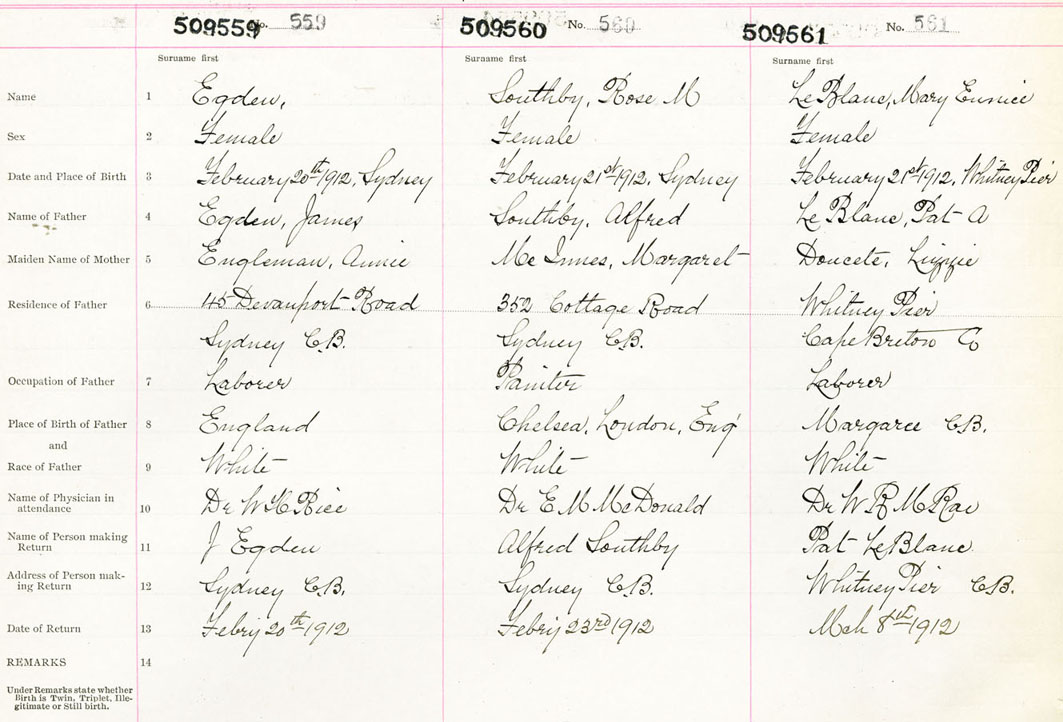 509559 No. 559 509560 No. 560 509561 No. 561
Surname first Surname first Surname first
Name 1 Egden, Southby, Rose M LeBlanc, Mary Eunice
Sex 2 Female Female Female
Date and Place of Birth 3 February 20th 1912, Sydney February 21st 1912, Sydney February 21st 1912, Whitney Pier
Name of Father 4 Egden, James Southby, Alfred Le Blanc, Pat A
Maiden Name of Mother 5 Engleman, Annie Mc Innes, Margaret Doucete, Lizzie
Residence of Father 6 45 Devanport Road 352 Cottage Road Whitney Pier
Sydney C.B. Sydney C.B. Cape Breton Co
Occupation of Father 7 Laborer Painter Laborer
Place of Birth of Father 8 England Chelsea, London, Eng Margaree C.B.
and
Race of Father 9 White White White
Name of Physician in
attendance 10 Dr W K Rice Dr E M McDonald Dr W R McRae
Name of Person making
Return 11 J Egden Alfred Southby Pat LeBlanc
Address of Person mak-
ing Return 12 Sydney C.B. Sydney C.B. Whitney Pier C.B.
Date of Return 13 Febry 20th 1912 Febry 23rd 1912 Mch 8th 1912
REMARKS 14
Under Remarks state whether
Birth is Twin, Triplet, Ille-
gitimate or Still birth.